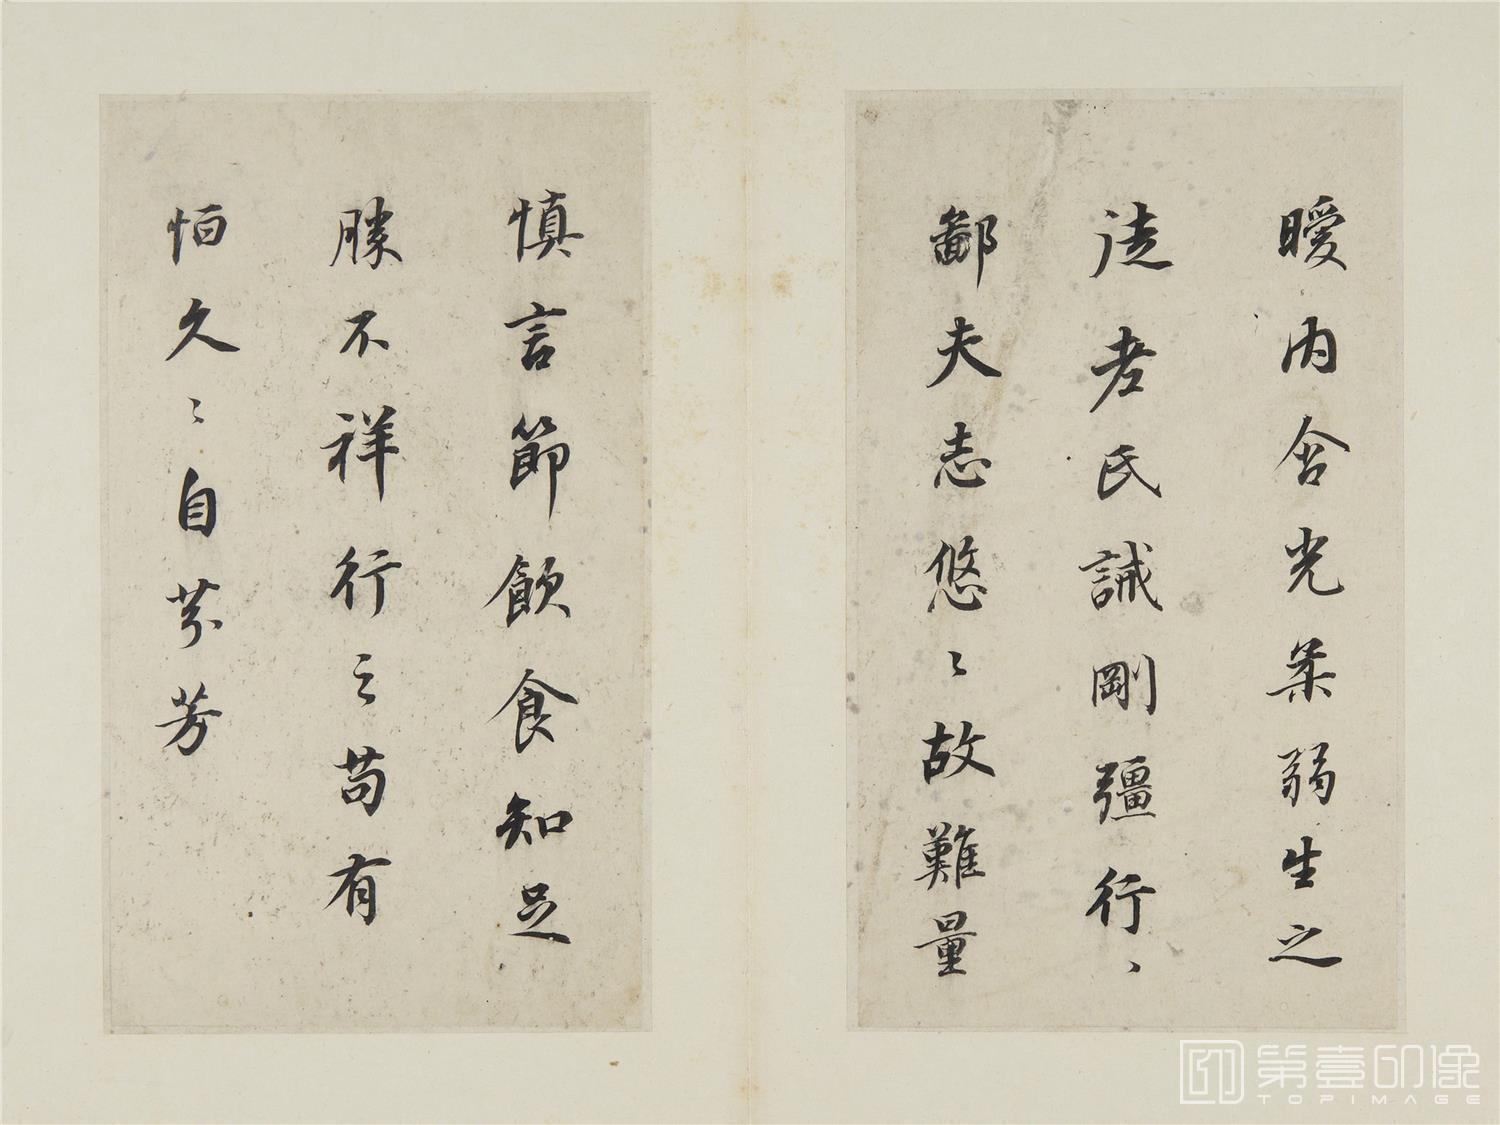 曖內含光柔弱生之
徒老氏誡剛彊行〻
鄙夫志悠〻故難量
慎言節飲食知足
勝不祥行之苟有
恒久〻自芬芳
第壹印像
TOPIMAGE